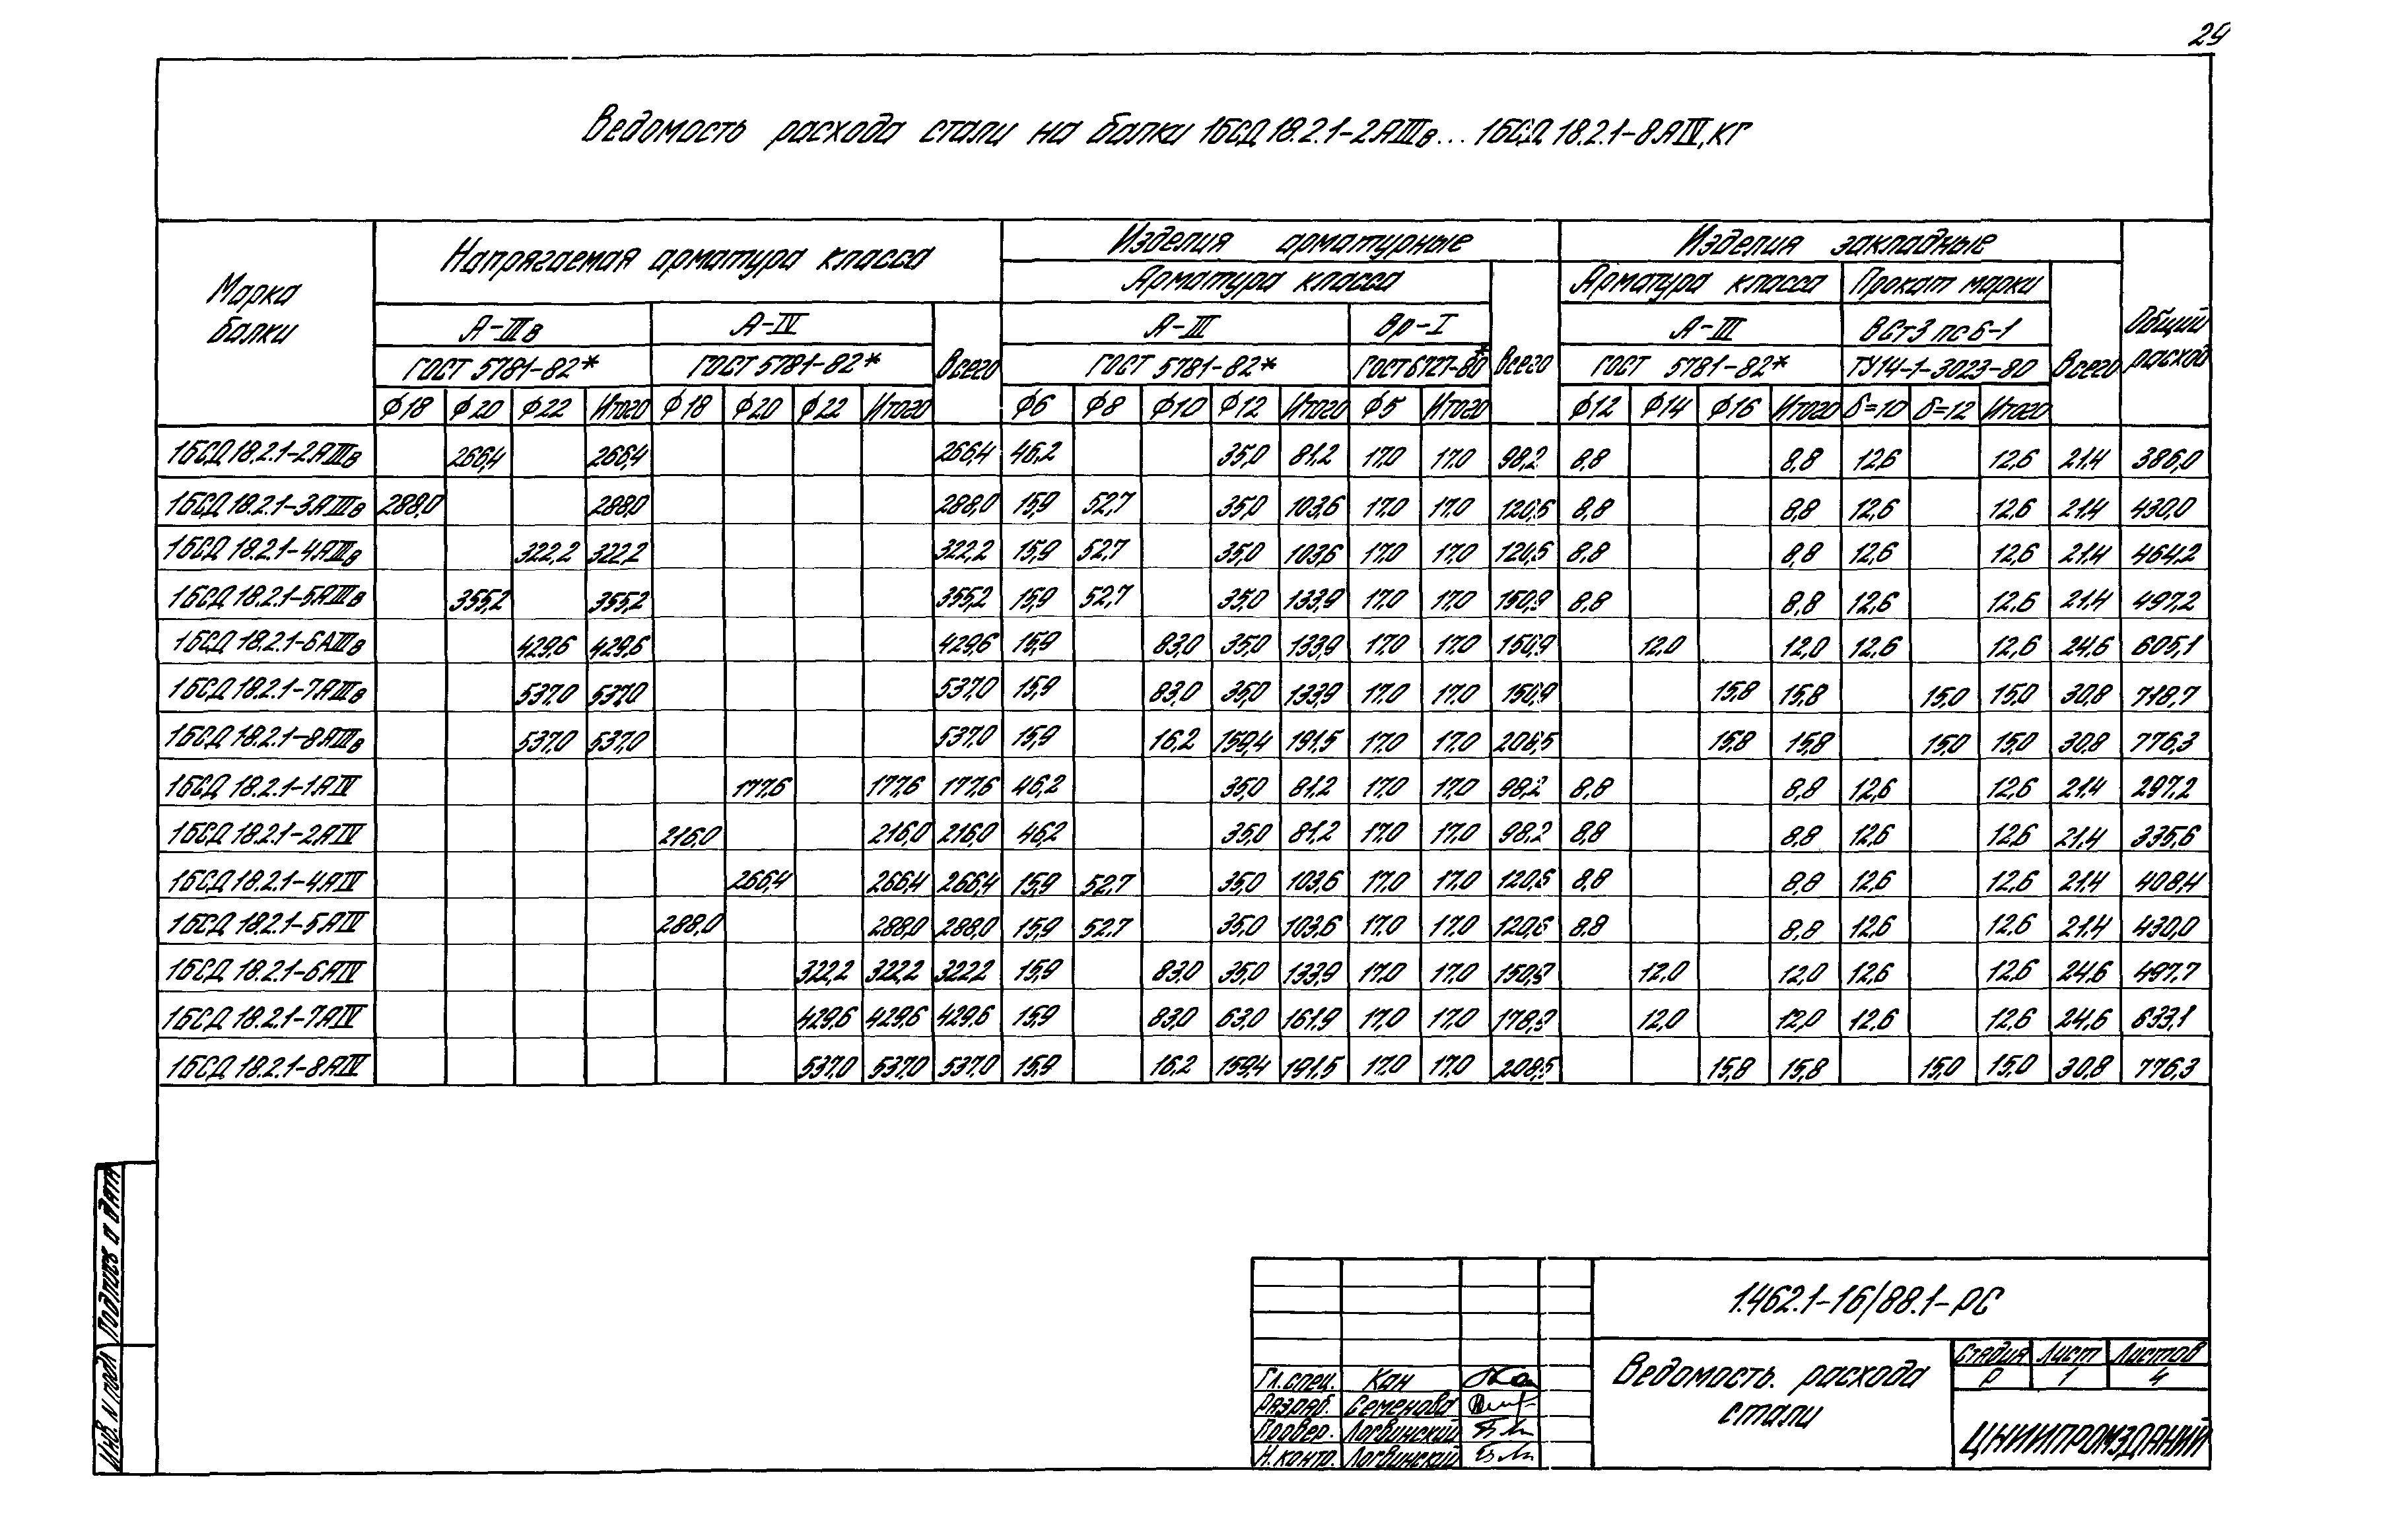 29
Ведомость расхода стали на балки 1БСД 18.2.1-2АIIIв...1БСД 18.2.1-8АIV, кг
Марка балки
Напрягаемая арматура класса
Изделия арматурные
Изделия закладные
Общий расход
Арматура класса
Всего
Арматура класса
Прокат марки
Всего
А-IIIв
А-IV
Всего
А-III
Вр-I
А-III
ВСт3 пс 6-1
ГОСТ 5781-82*
ГОСТ 5781-82*
ГОСТ 5781-82*
ГОСТ 6727-80*
ГОСТ 5781-82*
ТУ14-1-3023-80
ф18 ф20 ф22 Итого ф18 ф20 ф22 Итого ф6 ф8 ф10 ф12 Итого ф5 Итого ф12 ф14 ф16 Итого δ=10 δ=12 Итого
1БСД 18.2.1-2АIIIв 266,4 266,4 266,4 46,2 35,0 81,2 17,0 17,0 98,2 8,8 8,8 12,6 12,6 21.4 386,0
1БСД 18.2.1-3АIIIв 288,0 288,0 288,0 15,9 52,7 35,0 103,6 17,0 17,0 120,6 8,8 8,8 12,6 12,6 21.4 430,0
1БСД 18.2.1-4АIIIв 322,2 322,2 322,2 15,9 52,7 35,0 103,6 17,0 17,0 120,6 8,8 8,8 12,6 12,6 21.4 464,2
1БСД 18.2.1-5АIIIв 355,2 355,2 355,2 15,9 52,7 35,0 133,9 17,0 17,0 150,9 8,8 8,8 12,6 12,6 21.4 497,2
1БСД 18.2.1-6АIIIв 429,6 429,6 429,6 15,9 83,0 35,0 133,9 17,0 17,0 150,9 12,0 12,0 12,6 12,6 24,6 605,1
1БСД 18.2.1-7АIIIв 537,0 537,0 537,0 15,9 83,0 35,0 133,9 17,0 17,0 150,9 15,8 15,8 15,0 15,0 30,8 718,7
1БСД 18.2.1-8АIIIв 537,0 537,0 537,0 15,9 16,2 159,4 191,5 17,0 17,0 208,5 15,8 15,8 15,0 15,0 30,8 776,3
1БСД 18.2.1-1АIV 177,6 177,6 177,6 46,2 35,0 81,2 17,0 17,0 98,2 8,8 8,8 12,6 12,6 21.4 297,2
1БСД 18.2.1-2АIV 216,0 216,0 216,0 46,2 35,0 81,2 17,0 17,0 98,2 8,8 8,8 12,6 12,6 21.4 335,6
1БСД 18.2.1-4АIV 266,4 266,4 266,4 15,9 52,7 35,0 103,6 17,0 17,0 120,6 8,8 8,8 12,6 12,6 21.4 408,4
1БСД 18.2.1-5АIV 288,0 288,0 288,0 15,9 52,7 35,0 103,6 17,0 17,0 120,6 8,8 8,8 12,6 12,6 21.4 430,0
1БСД 18.2.1-6АIV 322,2 322,2 322,2 15,9 83,0 35,0 133,9 17,0 17,0 150,9 12,0 12,0 12,6 12,6 24,6 497,7
1БСД 18.2.1-7АIV 429,6 429,6 429,6 15,9 83,0 63,0 161,9 17,0 17,0 178,9 12,0 12,0 12,6 12,6 24,6 633,1
1БСД 18.2.1-8АIV 537,0 537,0 537,0 15,9 16,2 159,4 191,5 17,0 17,0 208,5 15,8 15,8 15,0 15,0 30,8 776,3
Подпись и дата
Инв. N подл
1.462.1-16/88.1-РС
Ведомость расхода стали
Стадия Лист Листов
Р 1 4
ЦНИИПРОМЗДАНИЙ
Гл.спец. Кан
Разраб. Семенова
Провер. Логвинский
Н.контр. Логвинский